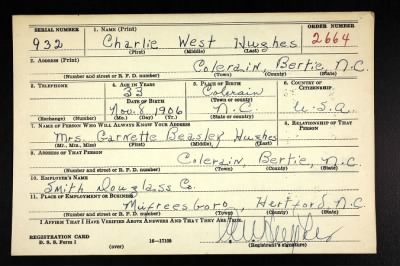 SERIAL NUMBER 1. NAME (Print) ORDER NUMBER
932 Charlie West Hughes 2664
(First) (Middle) (Last)
2. ADDRESS (Print)
Colerain, Bertie, N.C.
(Number and street or R. F. D. number) (Town) (County) (State)
3. TELEPHONE 4. AGE IN YEARS 5. PLACE OF BIRTH 6. COUNTRY OF CITIZENSHIP
33 Colerain
DATE OF BIRTH (Town or county)
Nov. 6, 1906 N.C. U.S.A.
(Exchange) (Number) (Mo.) (Day) (Yr.) (State or country)
7. NAME OF PERSON WHO WILL ALWAYS KNOW YOUR ADDRESS 8. RELATIONSHIP OF THAT PERSON
Mrs. Garnette Beasley Hughes
(Mr., Mrs., Miss) (First) (Middle) (Last)
9. ADDRESS OF THAT PERSON
Colerain, Bertie, N.C.
(Number and street or R. F. D. number) (Town) (County) (State)
10. EMPLOYER'S NAME
Smith Douglass Co.
11. PLACE OF EMPLOYMENT OR BUSINESS
Mufreesboro, Hertford, N.C.
(Number and street or R. F. D. number) (Town) (County) (State)
I AFFIRM THAT I HAVE VERIFIED ABOVE ANSWERS AND THAT THEY ARE TRUE.
REGISTRATION CARD
D. S. S. Form 1 (over) 16—17105 (Registrant's signature)